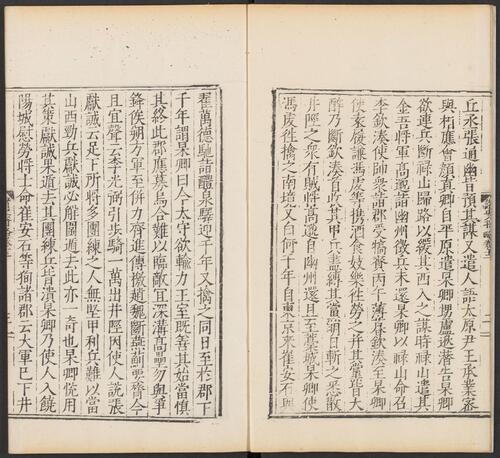 丘丞張通幽皆預其謀又遣人語太原尹王承業密
與相應會顔眞卿自平原遣杲卿甥盧逖潛告杲卿
欲連兵斷祿山歸路以緩其西入之謀時祿山遣其
金吾將軍高邈詣幽州徵兵未還杲卿以祿山命召
李欽湊使帥衆詣郡受犒賚丙午薄暮欽湊至杲卿
使袁履謙馮虔等攜酒食妓樂往勞之并其黨皆大
醉乃斷欽湊首收其甲兵盡縛其黨明日斬之悉散
井陘之衆有頃高邈自幽州還且至藁城杲卿使
馮虔往擒之南境又白何千年自東京來崔安石與
翟萬德馳詣醴泉驛迎千年又擒之同日至於郡下
千年謂杲卿曰今太守欲輸力王室既善其始當慎
其終此郡應募烏合難以臨敵宜深溝高壘勿與爭
鋒俟朔方軍至併力齊進傳檄趙魏斷燕薊要膂今
且宜聲云李光弼引步騎一萬出井陘因使人說張
獻誠云足下所將多團練之人無堅甲利兵難以當
山西勁兵獻誠必解圍遁去此亦一奇也杲卿悅用
其策獻誠果遁去其團練兵皆潰杲卿乃使人入饒
陽城慰勞將士命崔安石等徇諸郡云大軍已下井